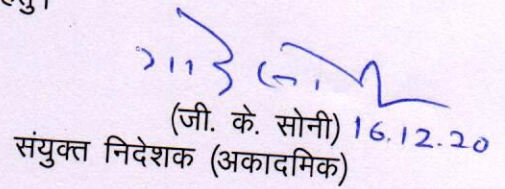 हेतु।
(जी. के. सोनी) 16.12.20
संयुक्त निदेशक (अकादमिक)